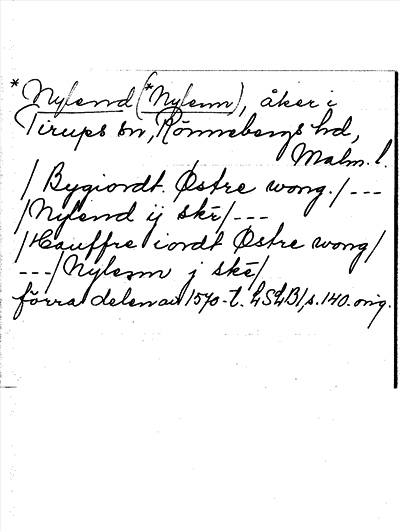 *Nylend (*Nylenn), åker i
Tirups sn, Rönnebergs hd,
Malm. l.
/ Bygiordt. Østre wong. / ---
/ Nylend ij ske / ---
/ Hauffre iordt Østre wong /
--- / Nylenn j ske /
förra delen av 1570-t. LSLB1, s. 140. orig.